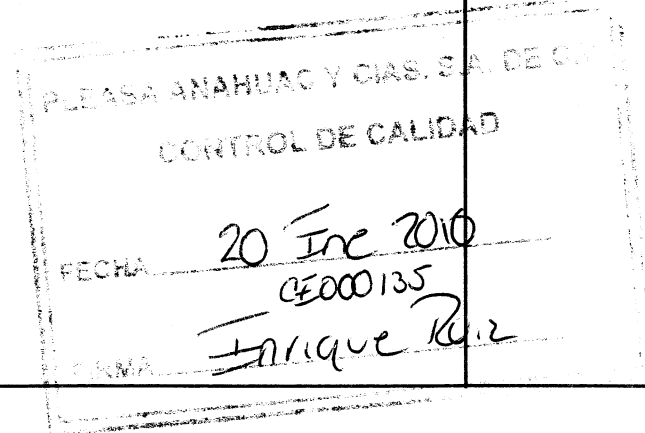 PLEASA ANAHUAC Y CIAS. S.A. DE C.V.
CONTROL DE CALIDAD
FECHA 20 Ene 2010
CE000135
FIRMA Enrique Ruiz